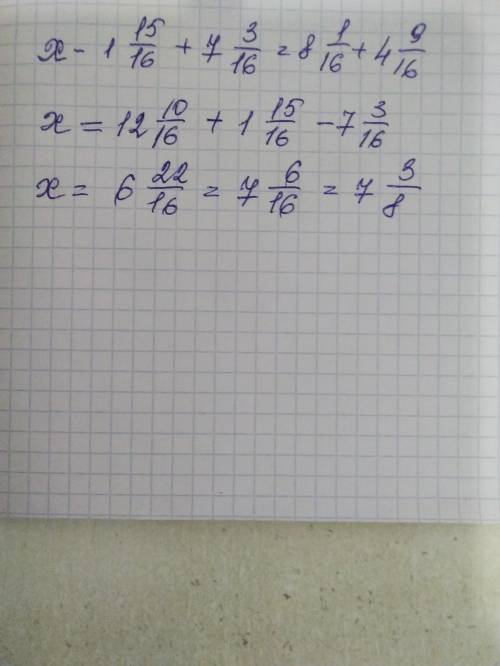 x - 1 15/16 + 7 3/16 = 8 1/16 + 4 9/16
x = 12 10/16 + 1 15/16 - 7 3/16
x = 6 22/16 = 7 6/16 = 7 3/8